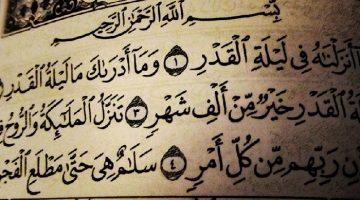 بِسْمِ ٱللَّهِ ٱلرَّحْمَٰنِ ٱلرَّحِيمِ
أَنزَلْنَٰهُ فِى لَيْلَةِ ٱلْقَدْرِ ١ وَمَآ أَدْرَىٰكَ مَا لَيْلَةُ ٱلْقَدْرِ
ٱلْقَدْرِ خَيْرٌ مِّنْ أَلْفِ شَهْرٍ ٣ تَنَزَّلُ ٱلْمَلَٰٓئِكَةُ وَٱلرُّوحُ
رَبِّهِم مِّن كُلِّ أَمْرٍ ٤ سَلَٰمٌ هِىَ حَتَّىٰ مَطْلَعِ